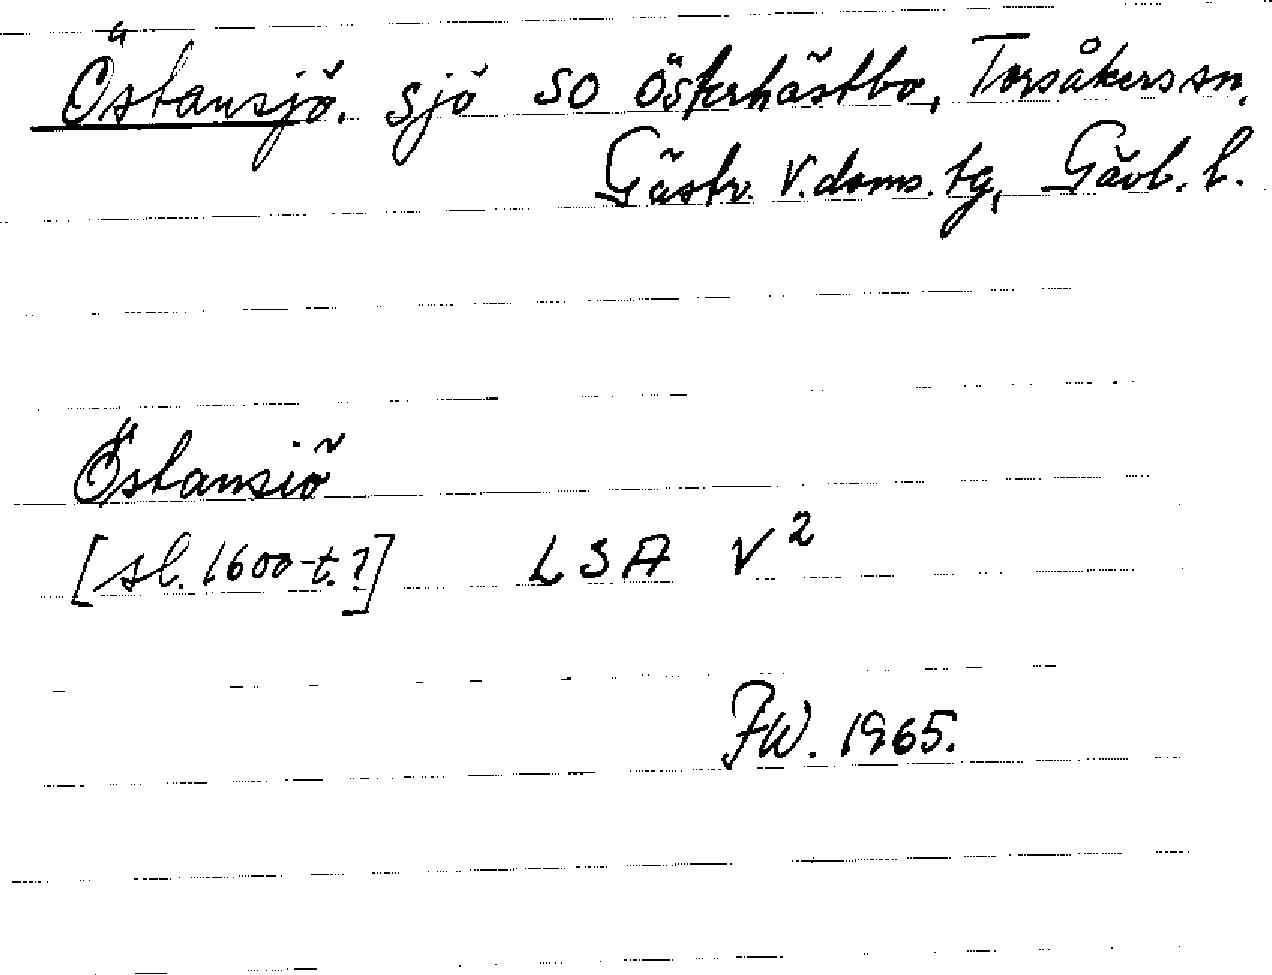 Östansjö. sjö SO Österhästbo, Torsåkers sn,
Gästr. V. doms. tg, Gävl. l.
Östansiö
[sl. 1600-t.?] LSA V²
FW. 1965.